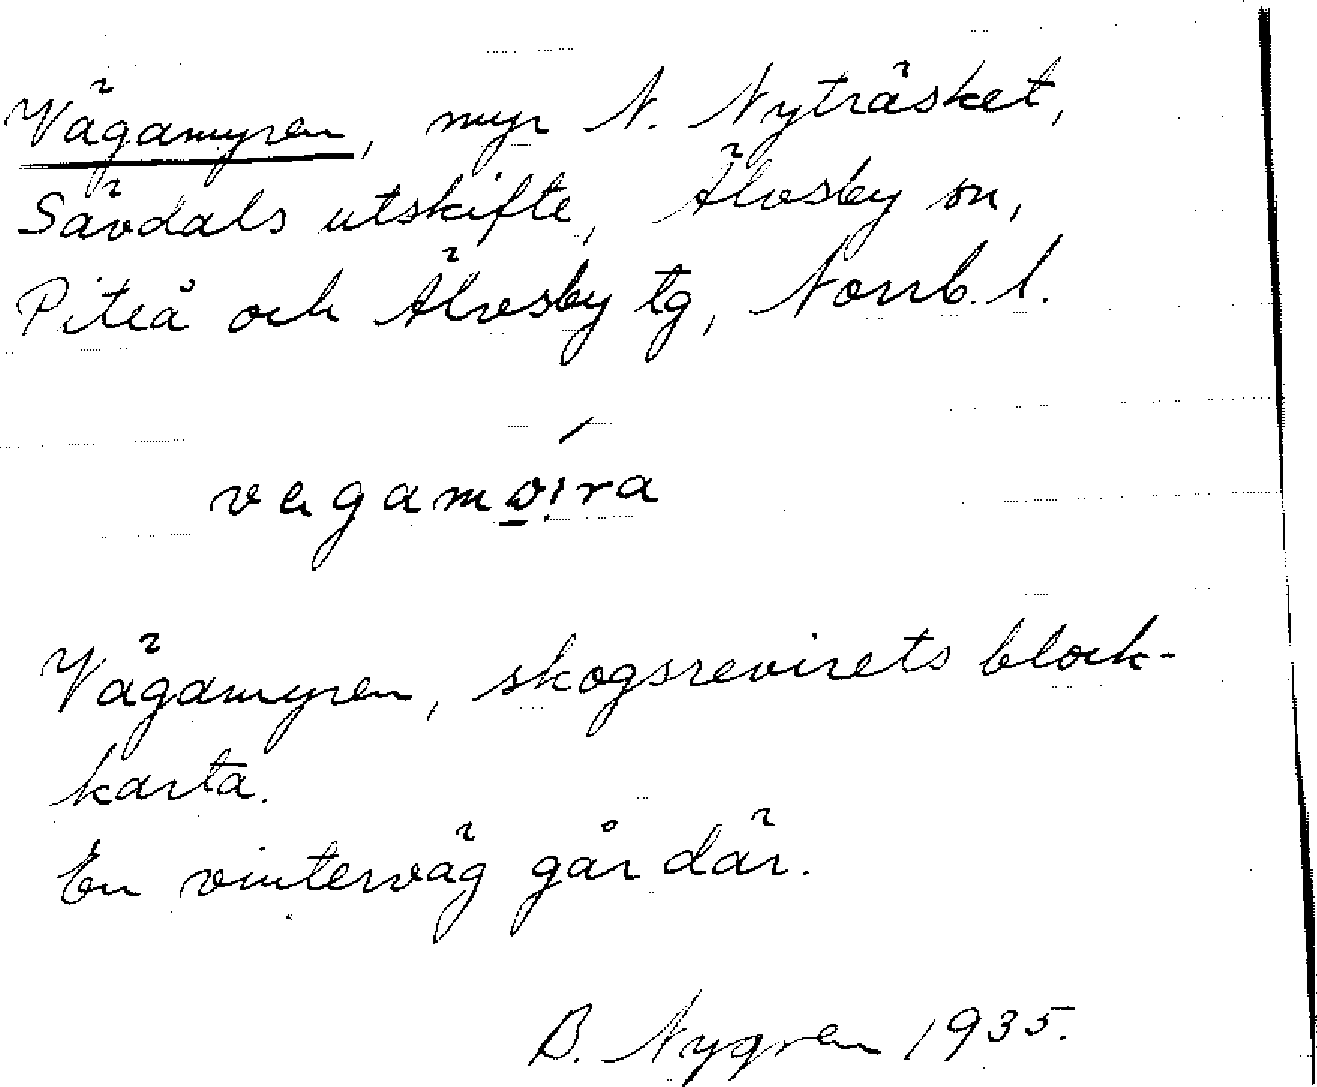 Vägamyren, myr N. Nyträsket,
Sävdals utskifte, Älvsby sn,
Piteå och Älvsby tg, Norrb. l.
vegamo̲i̇ra
Vägamyren, skogsrevirets block-
karta.
En vinterväg går där.
B. Nygren 1935.